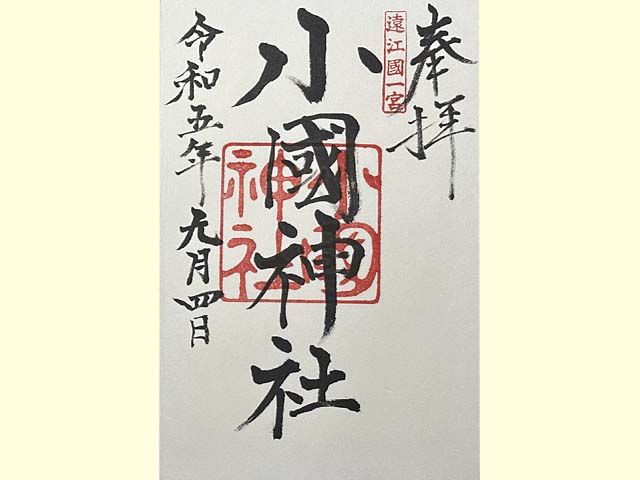 奉拝
遠江國一宮
小國神社
小國神社
令和五年 元月四日